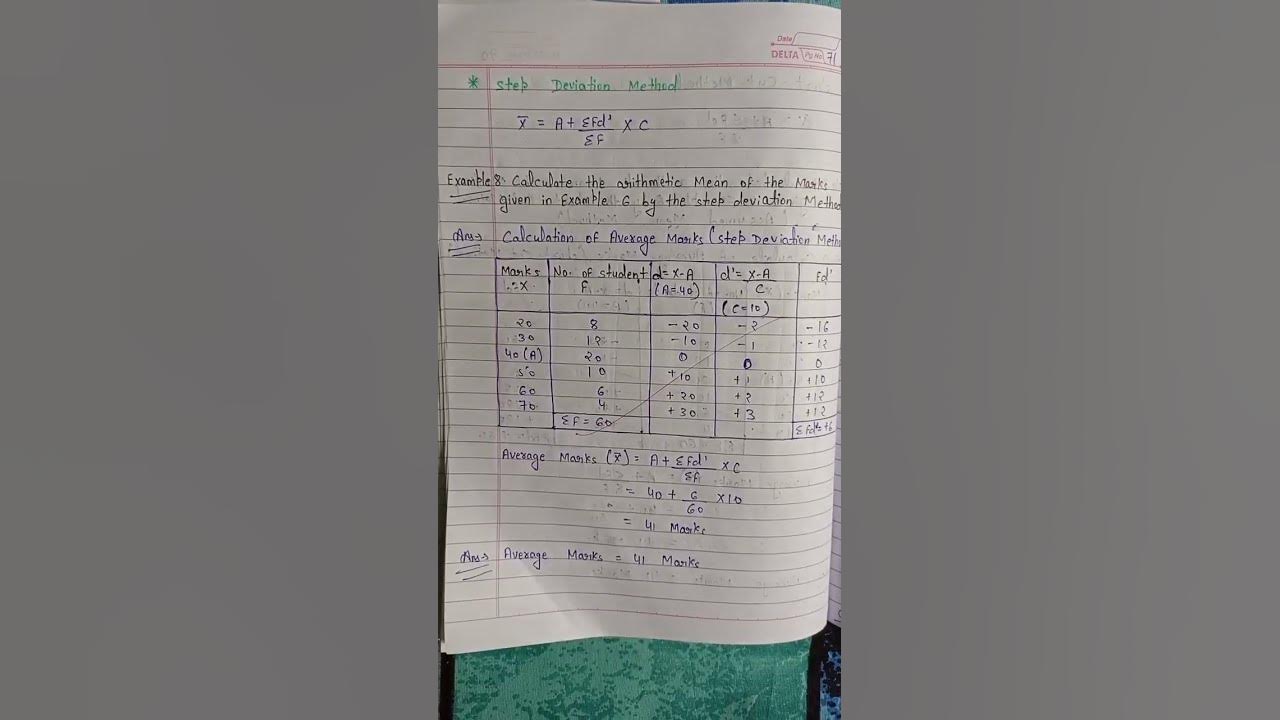 Date
DELTA Pg No 71
* Step Deviation Method
X̄ = A + ΣFd' / ΣF × C
Example 8. Calculate the arithmetic Mean of the Marks
given in Example 6 by the step deviation Method
Ans→ Calculation of Average Marks (Step Deviation Metho
Marks No. of student d= X-A d'= X-A Fd'
∴X F (A=40) C
(C=10)
20 8 -20 -2 -16
30 12 -10 -1 -12
40 (A) 20 0 0 0
50 10 +10 +1 +10
60 6 +20 +2 +12
70 4 +30 +3 +12
ΣF = 60 ΣFd'= +6
Average Marks (X̄) = A + ΣFd' / ΣF × C
= 40 + 6 / 60 × 10
= 41 Marks
Ans→ Average Marks = 41 Marks